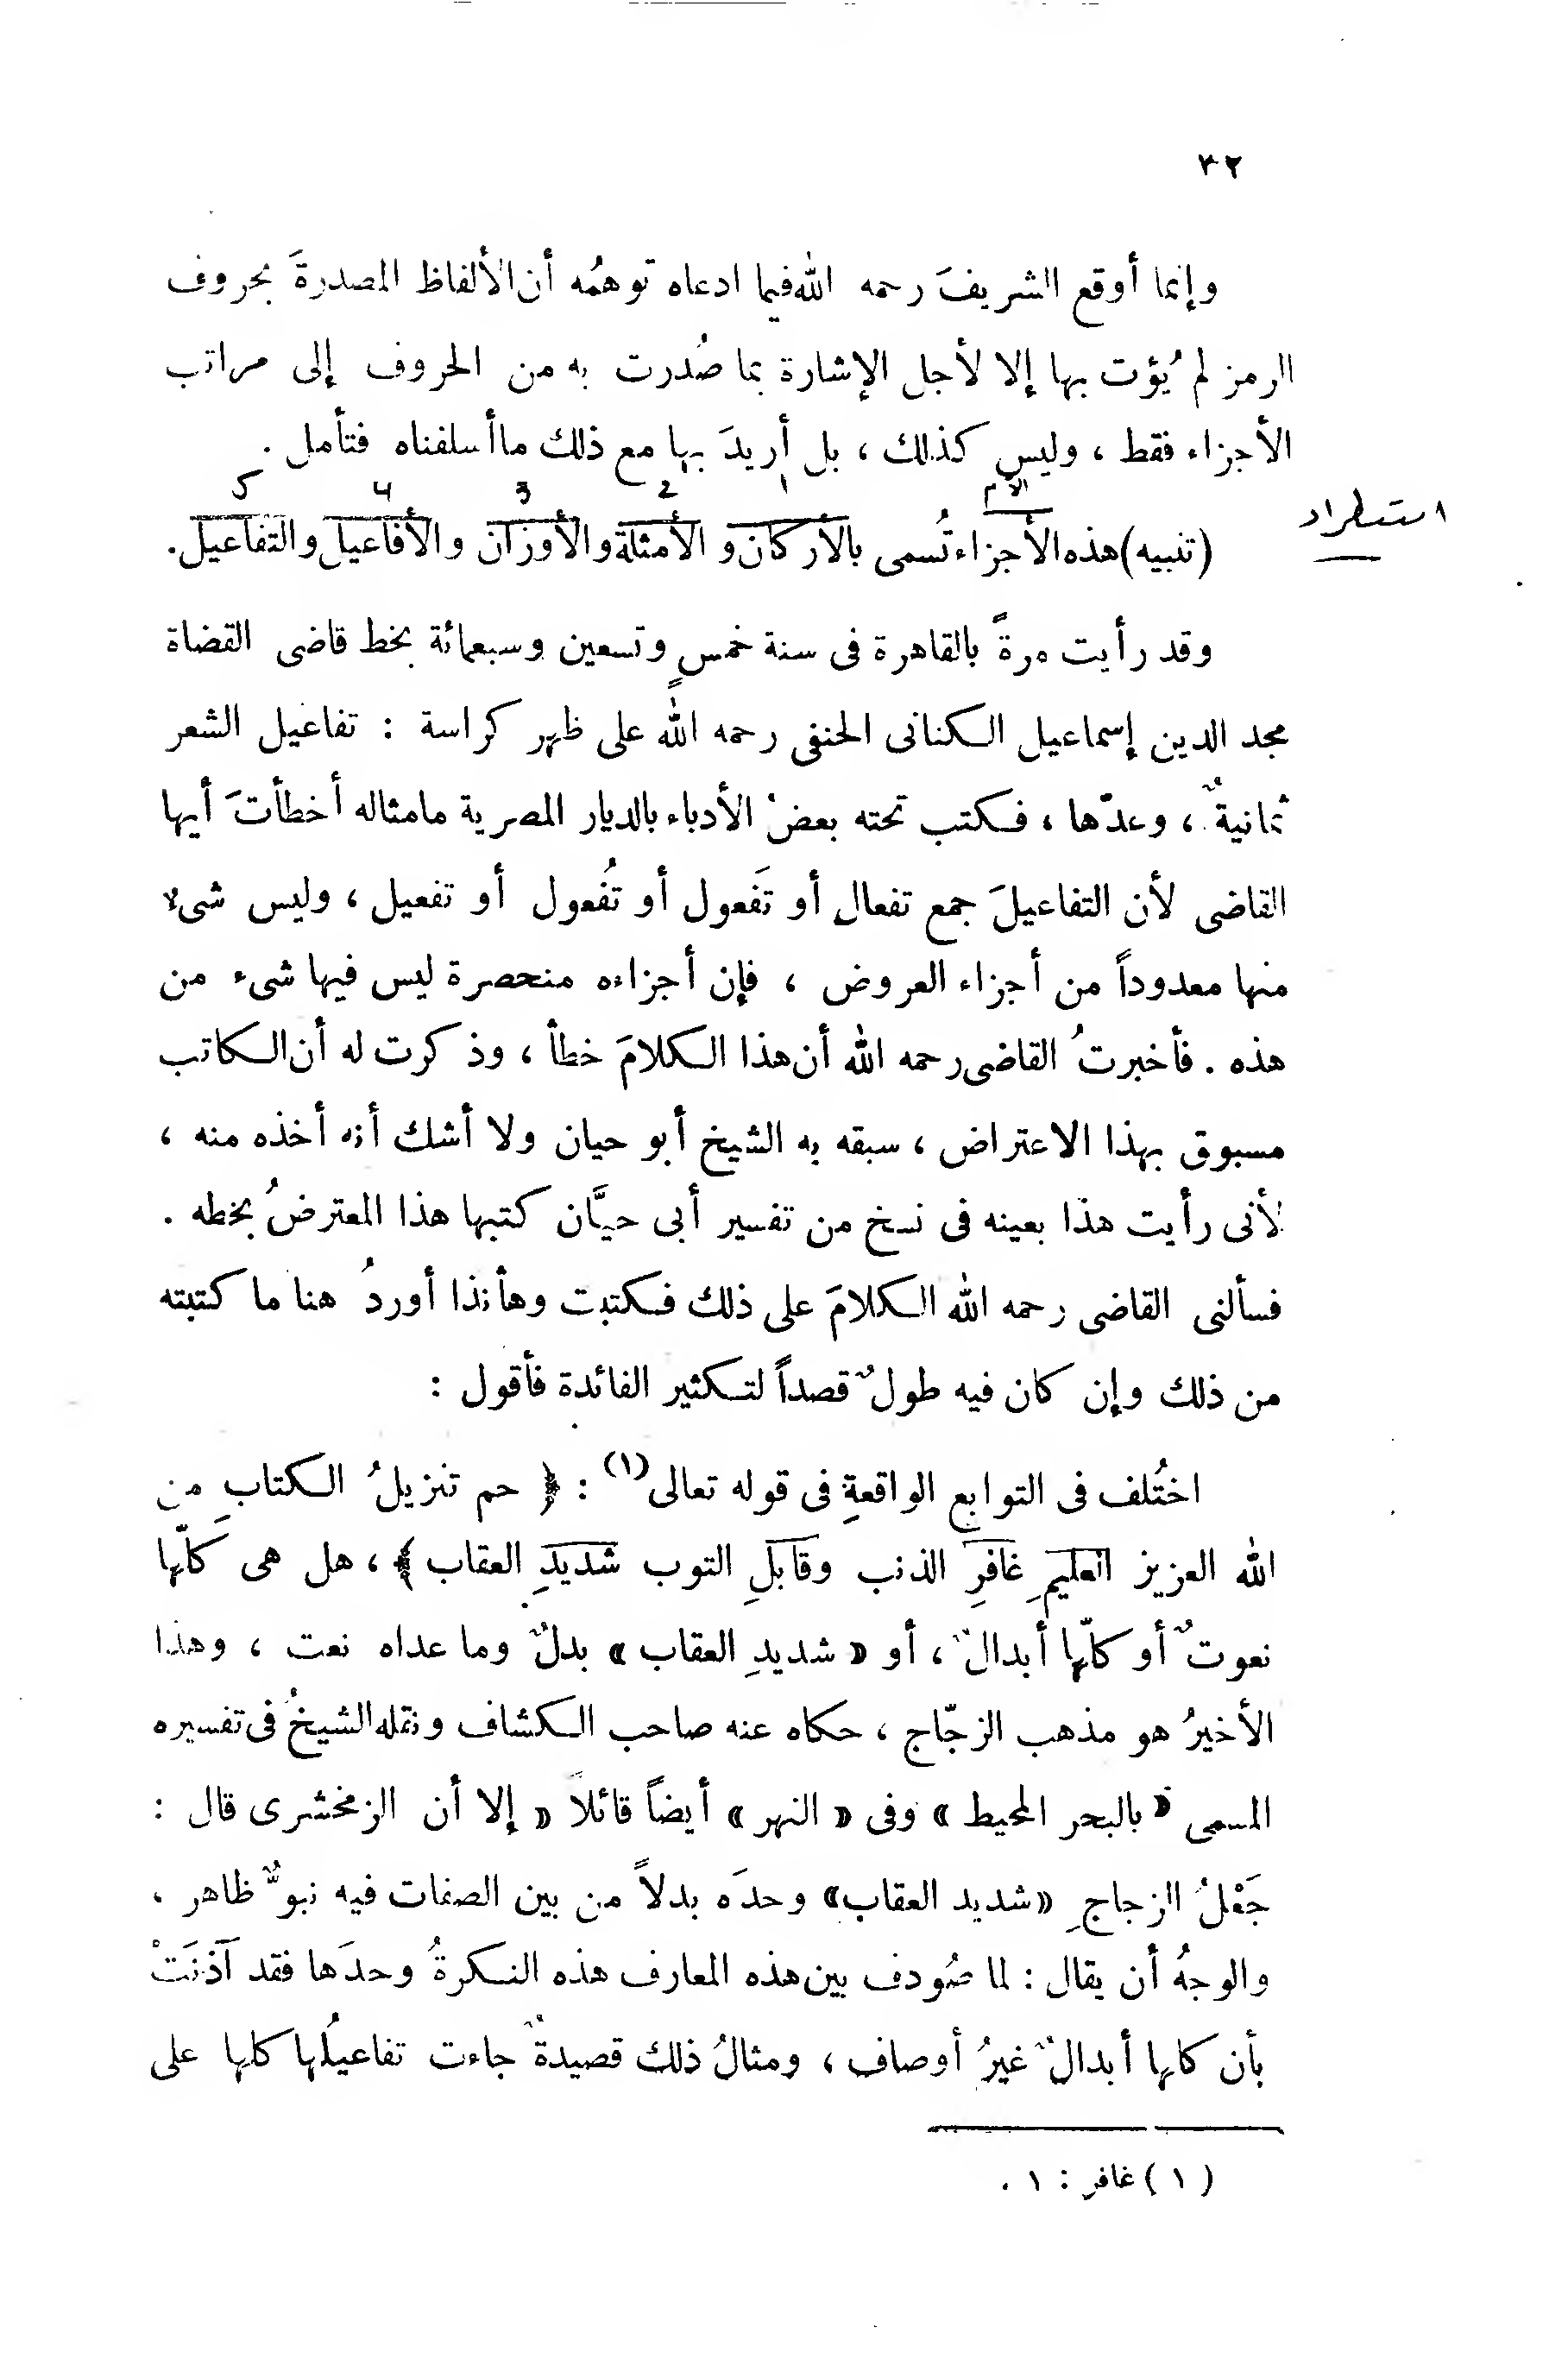 ٣٢
وإنما أوقع الشريفَ رحمه الله فيما ادعاه توهمُه أن الألفاظ المصدرةَ بحروف
الرمز لم يُؤت بها إلا لأجل الإشارة بما صُدرت به من الحروف إلى مراتب
الأجزاء فقط ، وليس كذلك ، بل أريدَ بها مع ذلك ما أسلفناه فتأمل .
١ 2 3 ٤ ٥
استطراد
(تنبيه) هذه الأجزاء تُسمى بالأركان والأمثلة والأوزان والأفاعيل والتفاعيل.
وقد رأيت مرةً بالقاهرة فى سنة خمسٍ وتسعين وسبعمائة بخط قاضى القضاة
مجد الدين إسماعيل الكنانى الحنفى رحمه الله على ظهر كراسة : تفاعيل الشعر
ثمانيةٌ ، وعدّها ، فكتب تحته بعضُ الأدباء بالديار المصرية ما مثاله أخطأتَ أيها
القاضى لأن التفاعيلَ جمع تفعال أو تَفعول أو تُفعول أو تفعيل ، وليس شىء
منها معدوداً من أجزاء العروض ، فإن أجزاءه منحصرة ليس فيها شىء من
هذه . فأخبرتُ القاضى رحمه الله أن هذا الكلامَ خطأ ، وذكرت له أن الكاتب
مسبوق بهذا الاعتراض ، سبقه به الشيخ أبو حيان ولا أشك أنه أخذه منه ،
لأنى رأيت هذا بعينه فى نسخ من تفسير أبى حيَّان كتبها هذا المعترضُ بخطه .
فسألنى القاضى رحمه الله الكلامَ على ذلك فكتبت وهأنذا أوردُ هنا ما كتبته
من ذلك وإن كان فيه طولٌ قصداً لتكثير الفائدة فأقول :
اختُلف فى التوابع الواقعةِ فى قوله تعالى(١) : ﴿ حم تنزيلُ الكتابِ من
الله العزيز العليمِ غافرِ الذنب وقابلِ التوب شديدِ العقاب ﴾ ، هل هى كلّها
نعوتٌ أو كلّها أبدالٌ ، أو « شديدِ العقاب » بدلٌ وما عداه نعت ، وهذا
الأخيرُ هو مذهب الزجّاج ، حكاه عنه صاحب الكشاف ونقله الشيخُ فى تفسيره
المسمى « بالبحر المحيط » وفى « النهر » أيضاً قائلاً « إلا أن الزمخشرى قال :
جَعْلُ الزجاجِ «شديد العقاب» وحدَه بدلاً من بين الصفات فيه نبوٌّ ظاهر ،
والوجهُ أن يقال : لما صُودف بين هذه المعارف هذه النكرةُ وحدَها فقد آذنَتْ
بأن كلها أبدالٌ غيرُ أوصاف ، ومثالُ ذلك قصيدةٌ جاءت تفاعيلُها كلها على
(١) غافر : ١ .